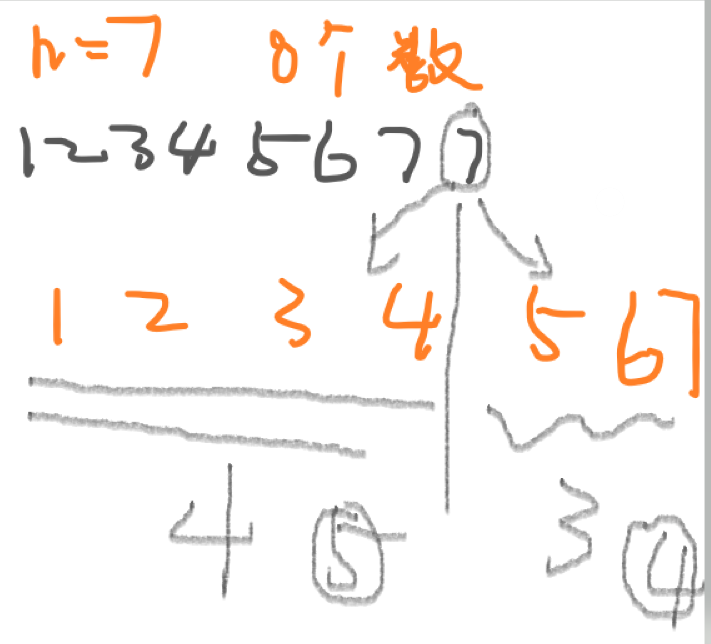 n=7 8个数
1 2 3 4 5 6 7 7
1 2 3 4 5 6 7
4 5 3 4